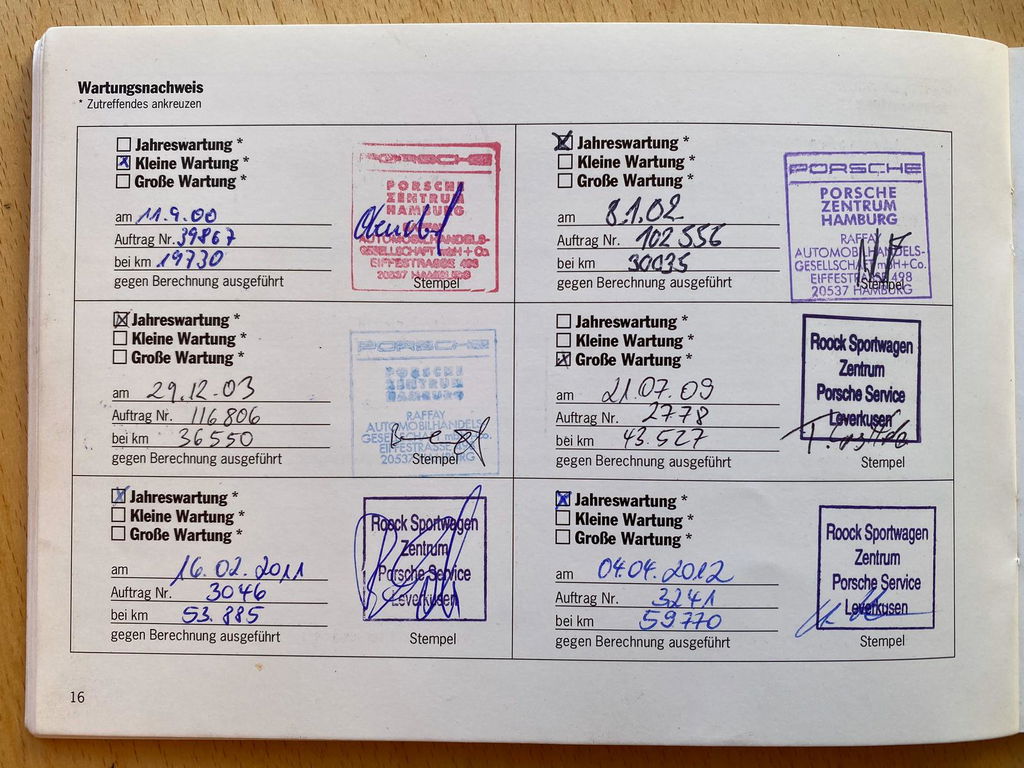 Wartungsnachweis
* Zutreffendes ankreuzen
Jahreswartung *
Kleine Wartung *
Große Wartung *
am 11.9.00
Auftrag Nr. 39867
bei km 19730
gegen Berechnung ausgeführt
PORSCHE
PORSCHE
ZENTRUM
HAMBURG
AUTOMOBILHANDELS-
GESELLSCHAFT mbH + Co.
EIFFESTRASSE 498
20537 HAMBURG
Stempel
Jahreswartung *
Kleine Wartung *
Große Wartung *
am 8.1.02
Auftrag Nr. 102556
bei km 30035
gegen Berechnung ausgeführt
PORSCHE
PORSCHE
ZENTRUM
HAMBURG
RAFFAY
AUTOMOBILHANDELS-
GESELLSCHAFT mbH+Co.
EIFFESTRASSE 498
20537 HAMBURG
Stempel
Jahreswartung *
Kleine Wartung *
Große Wartung *
am 29.12.03
Auftrag Nr. 116806
bei km 36550
gegen Berechnung ausgeführt
PORSCHE
PORSCHE
ZENTRUM
HAMBURG
RAFFAY
AUTOMOBILHANDELS-
GESELLSCHAFT mbH+Co.
EIFFESTRASSE 498
20537 HAMBURG
Stempel
Jahreswartung *
Kleine Wartung *
Große Wartung *
am 21.07.09
Auftrag Nr. 2778
bei km 43.527
gegen Berechnung ausgeführt
Roock Sportwagen
Zentrum
Porsche Service
Leverkusen
Stempel
Jahreswartung *
Kleine Wartung *
Große Wartung *
am 16.02.2011
Auftrag Nr. 3046
bei km 53.885
gegen Berechnung ausgeführt
Roock Sportwagen
Zentrum
Porsche Service
Leverkusen
Stempel
Jahreswartung *
Kleine Wartung *
Große Wartung *
am 04.04.2012
Auftrag Nr. 3241
bei km 59770
gegen Berechnung ausgeführt
Roock Sportwagen
Zentrum
Porsche Service
Leverkusen
Stempel
16